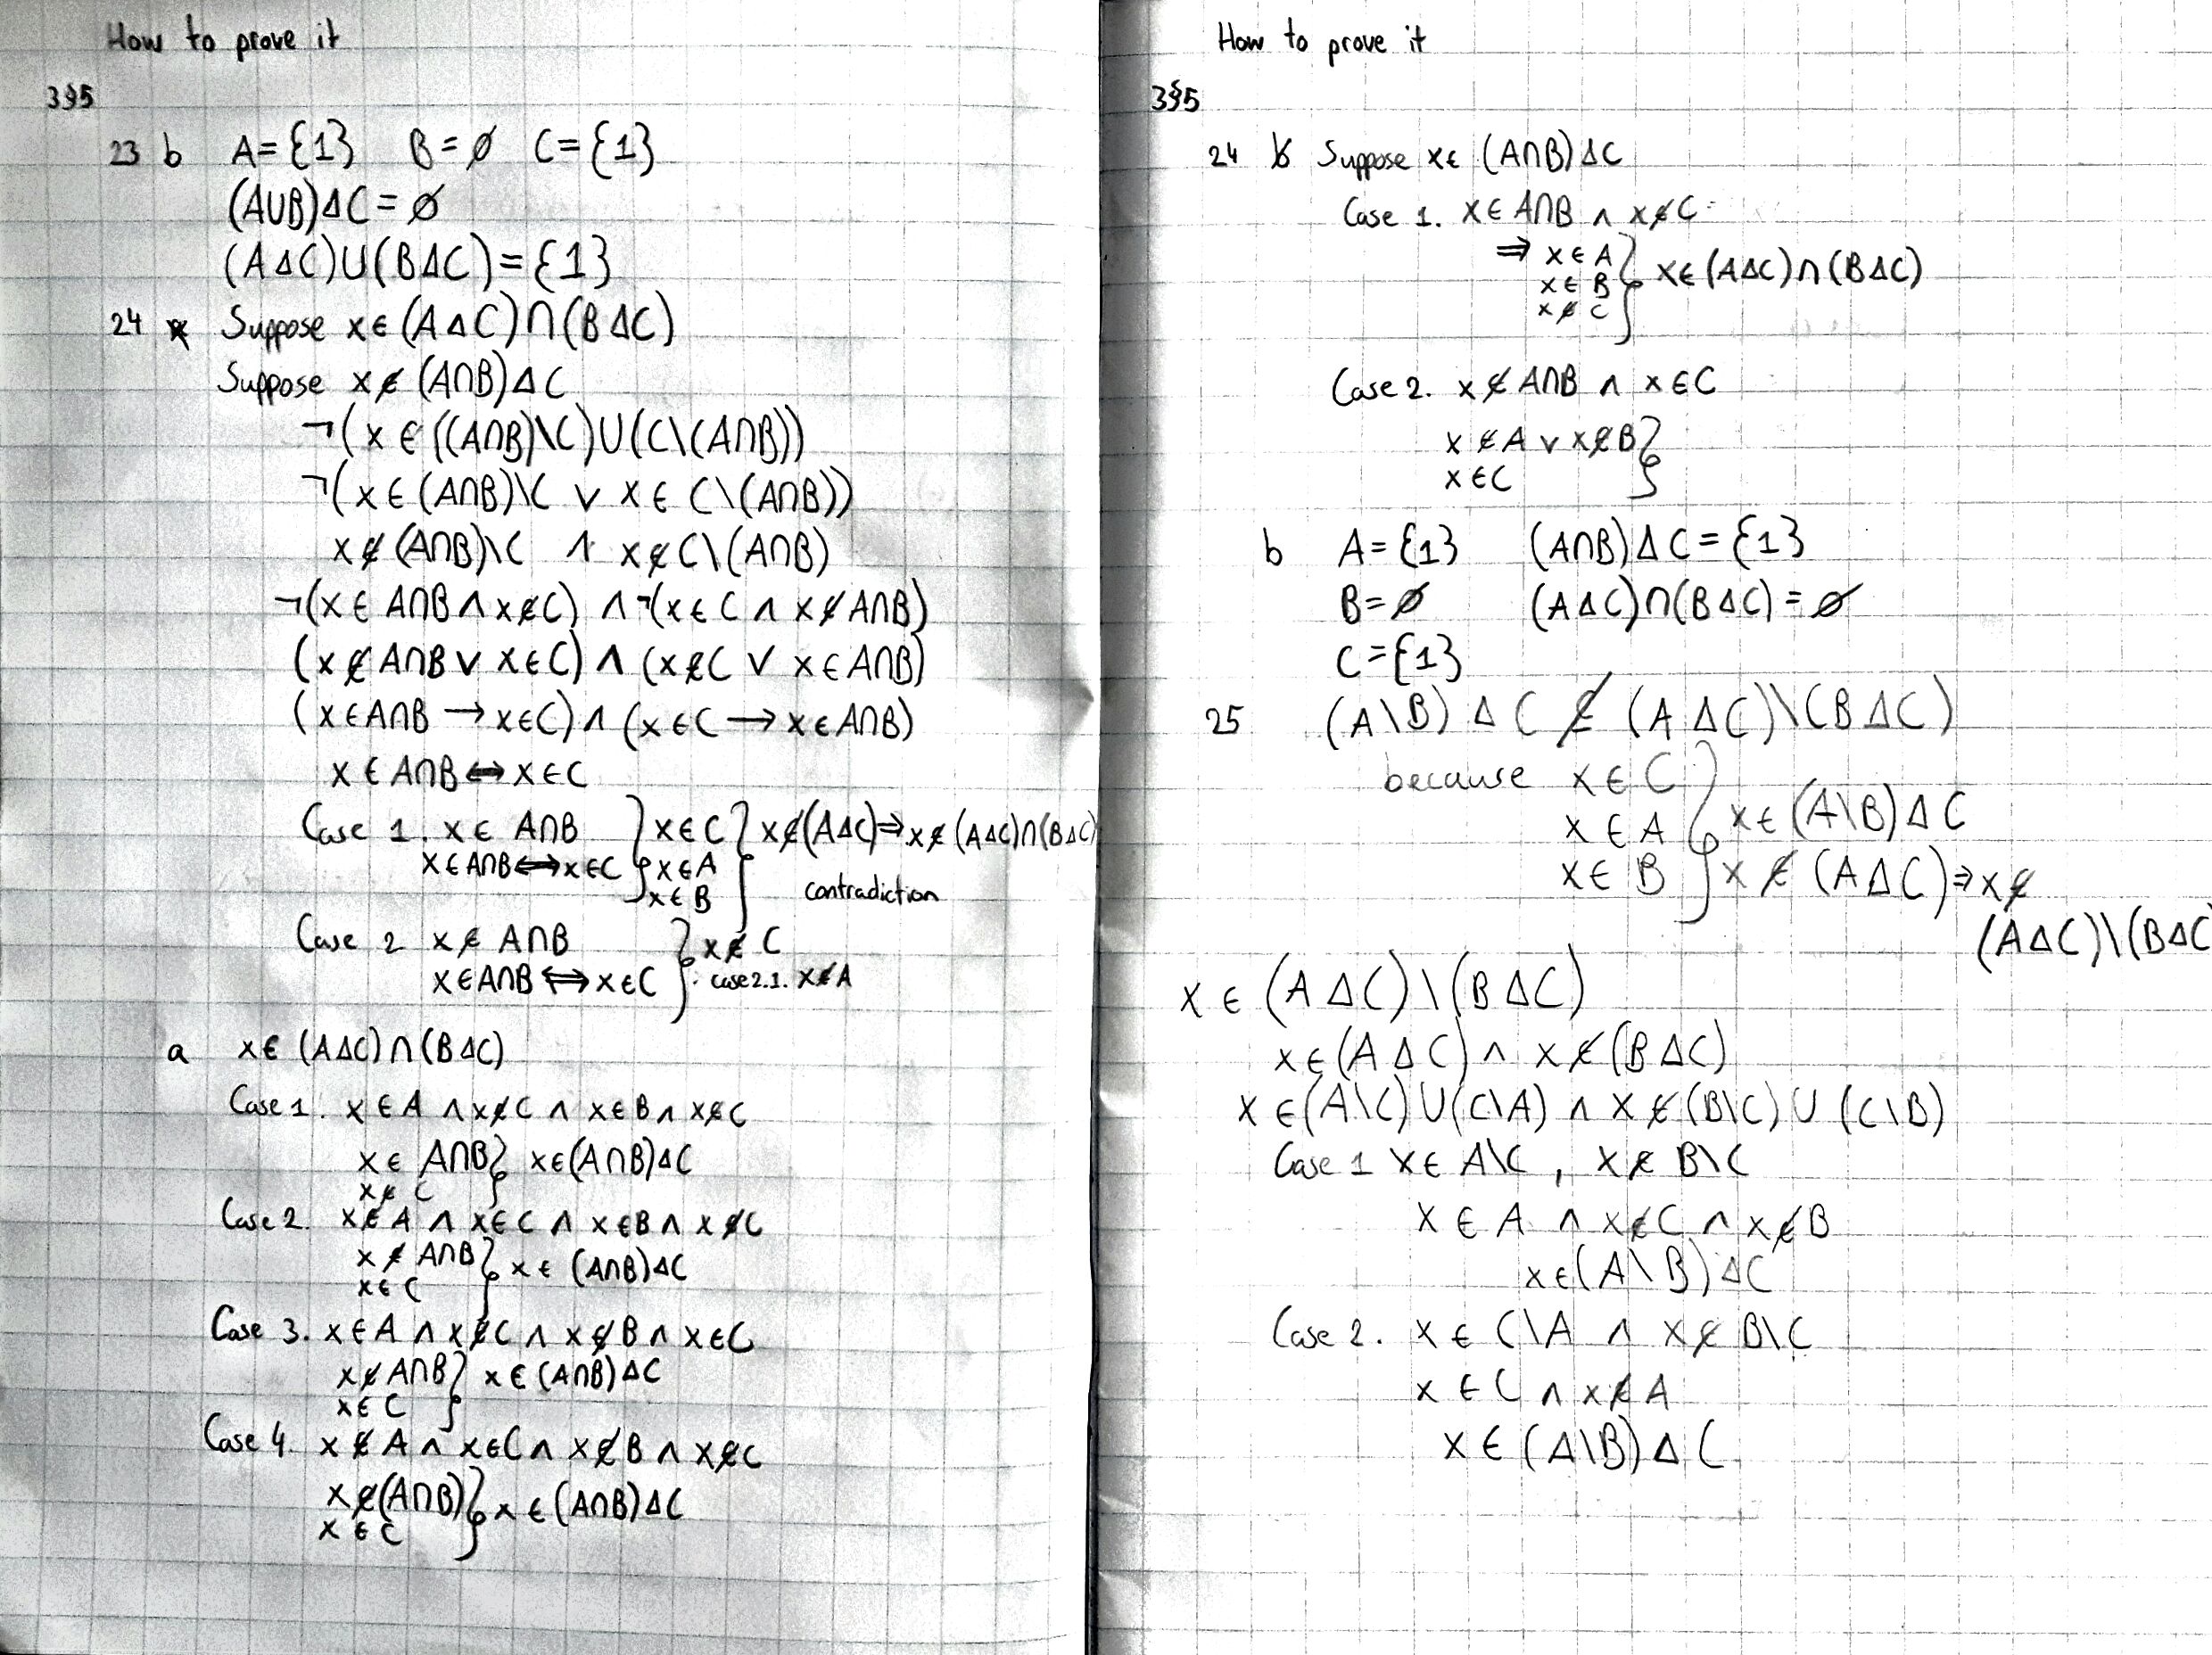 How to prove it
3§5
23 b A={1} B=∅ C={1}
(A∪B)ΔC=∅
(AΔC)∪(BΔC)={1}
24 Suppose x∈(AΔC)∩(BΔC)
Suppose x∉(A∩B)ΔC
¬(x∈((A∩B)\C)∪(C\(A∩B))
¬(x∈(A∩B)\C ∨ x∈C\(A∩B))
x∉(A∩B)\C ∧ x∉C\(A∩B)
¬(x∈A∩B∧x∉C) ∧¬(x∈C ∧ x∉A∩B)
(x∉A∩B ∨ x∈C) ∧ (x∉C ∨ x∈A∩B)
(x∈A∩B → x∈C) ∧ (x∈C → x∈A∩B)
x∈A∩B ↔ x∈C
Case 1. x∈A∩B } x∈C } x∉(AΔC)⇒x∉(AΔC)∩(BΔC)
x∈A∩B⟺x∈C x∈A
x∈B contradiction
Case 2 x∉A∩B } x∉C
x∈A∩B⟺x∈C case 2.1. x∉A
a x∈(AΔC)∩(BΔC)
Case 1. x∈A ∧ x∉C ∧ x∈B ∧ x∉C
x∈A∩B } x∈(A∩B)ΔC
x∉C
Case 2. x∉A ∧ x∈C ∧ x∈B ∧ x∉C
x∉A∩B } x∈(A∩B)ΔC
x∈C
Case 3. x∈A ∧ x∉C ∧ x∉B ∧ x∈C
x∉A∩B } x∈(A∩B)ΔC
x∈C
Case 4. x∉A ∧ x∈C ∧ x∉B ∧ x∉C
x∉(A∩B) } x∈(A∩B)ΔC
x∈C
How to prove it
3§5
24 Suppose x∈(A∩B)ΔC
Case 1. x∈A∩B ∧ x∉C
⇒ x∈A } x∈(AΔC)∩(BΔC)
x∈B
x∉C
Case 2. x∉A∩B ∧ x∈C
x∉A ∨ x∉B }
x∈C
b A={1} (A∩B)ΔC={1}
B=∅ (AΔC)∩(BΔC)=∅
C={1}
25 (A\B)ΔC ⊈ (AΔC)\(BΔC)
because x∈C }
x∈A x∈(A\B)ΔC
x∈B x∉(AΔC)⇒x∉
(AΔC)\(BΔC
x∈(AΔC)\(BΔC)
x∈(AΔC) ∧ x∉(BΔC)
x∈(A\C)∪(C\A) ∧ x∉(B\C)∪(C\B)
Case 1 x∈A\C, x∉B\C
x∈A ∧ x∉C ∧ x∉B
x∈(A\B)ΔC
Case 2. x∈C\A ∧ x∉B\C
x∈C ∧ x∉A
x∈(A\B)ΔC